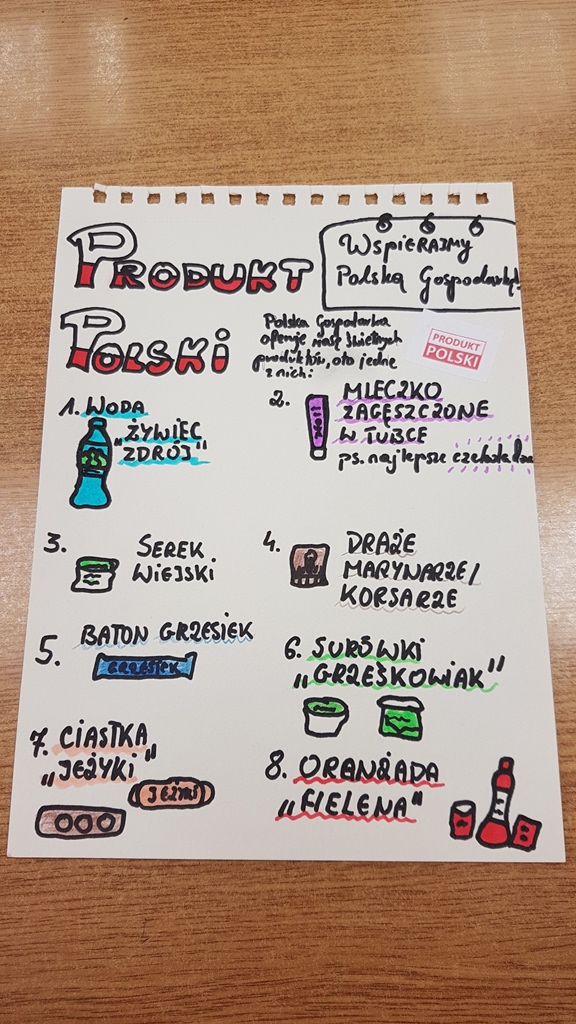 PRODUKT
POLSKI
WSPIERAJMY
Polską Gospodarkę
Polska Gospodarka
oferuje masę świetnych
produktów, oto jedne
z nich:
PRODUKT
POLSKI
1. WODA
„ŻYWIEC
ZDRÓJ"
2. MLECZKO
ZAGĘSZCZONE
W TUBCE
ps. najlepsze czekolada
3. SEREK
WIEJSKI
4. DRAŻE
MARYNARZE/
KORSARZE
5. BATON GRZESIEK
GRZESIEK
6. SURÓWKI
„GRZEŚKOWIAK"
7. CIASTKA
„JEŻYKI"
JEŻYKI
8. ORANŻADA
„HELENA"